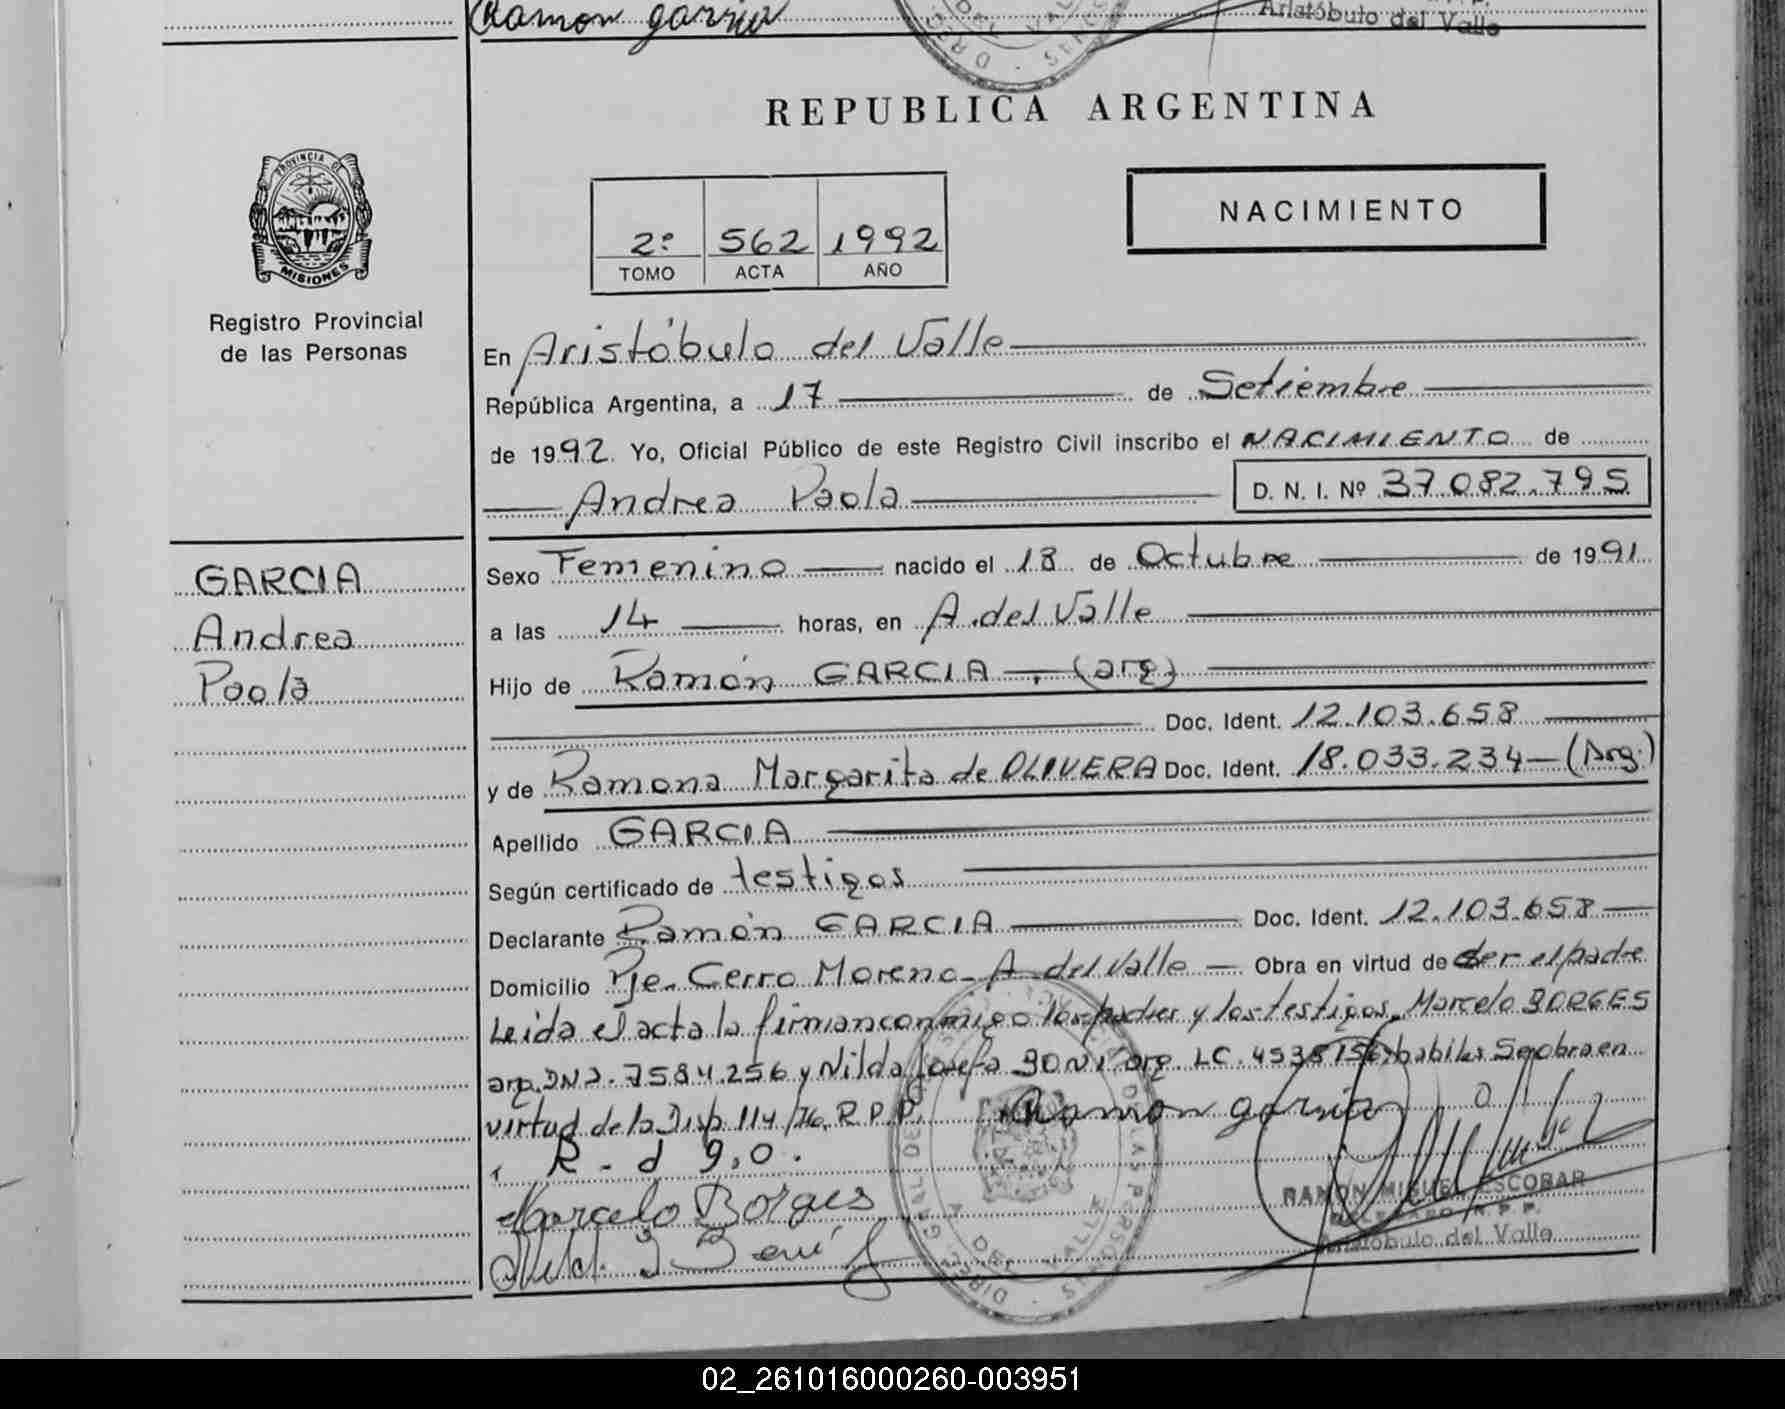 Ramon garcia
Aristóbulo del Valle
REPUBLICA ARGENTINA
PROVINCIA DE
MISIONES
Registro Provincial
de las Personas
2º 562 1992
TOMO ACTA AÑO
NACIMIENTO
En Aristóbulo del Valle
República Argentina, a 17 de Setiembre
de 1992 Yo, Oficial Público de este Registro Civil inscribo el NACIMIENTO de
Andrea Paola D. N. I. Nº 37.082.795
GARCIA
Andrea
Paola
Sexo Femenino nacido el 18 de Octubre de 1991
a las 14 horas, en A. del Valle
Hijo de Ramón GARCIA - (arg)
Doc. Ident. 12.103.658
y de Ramona Margarita de OLIVERA Doc. Ident. 18.033.234 - (Arg.)
Apellido GARCIA
Según certificado de testigos
Declarante Ramón GARCIA Doc. Ident. 12.103.658
Domicilio Pje. Cerro Moreno - A del Valle - Obra en virtud de ser el padre
Leida el acta la firman conmigo los padres y los testigos Marcelo BORGES
arg. DNI. 7584.256 y Nilda Josefa arg. LC. habiles Se obra en
virtud de la Disp. 114/76 R.P.P. Ramon garcia
R - d g, o.
Marcelo Borges
RAMON MIGUEL ESCOBAR
DELEGADO R.P.P.
Aristóbulo del Valle
02_261016000260-003951